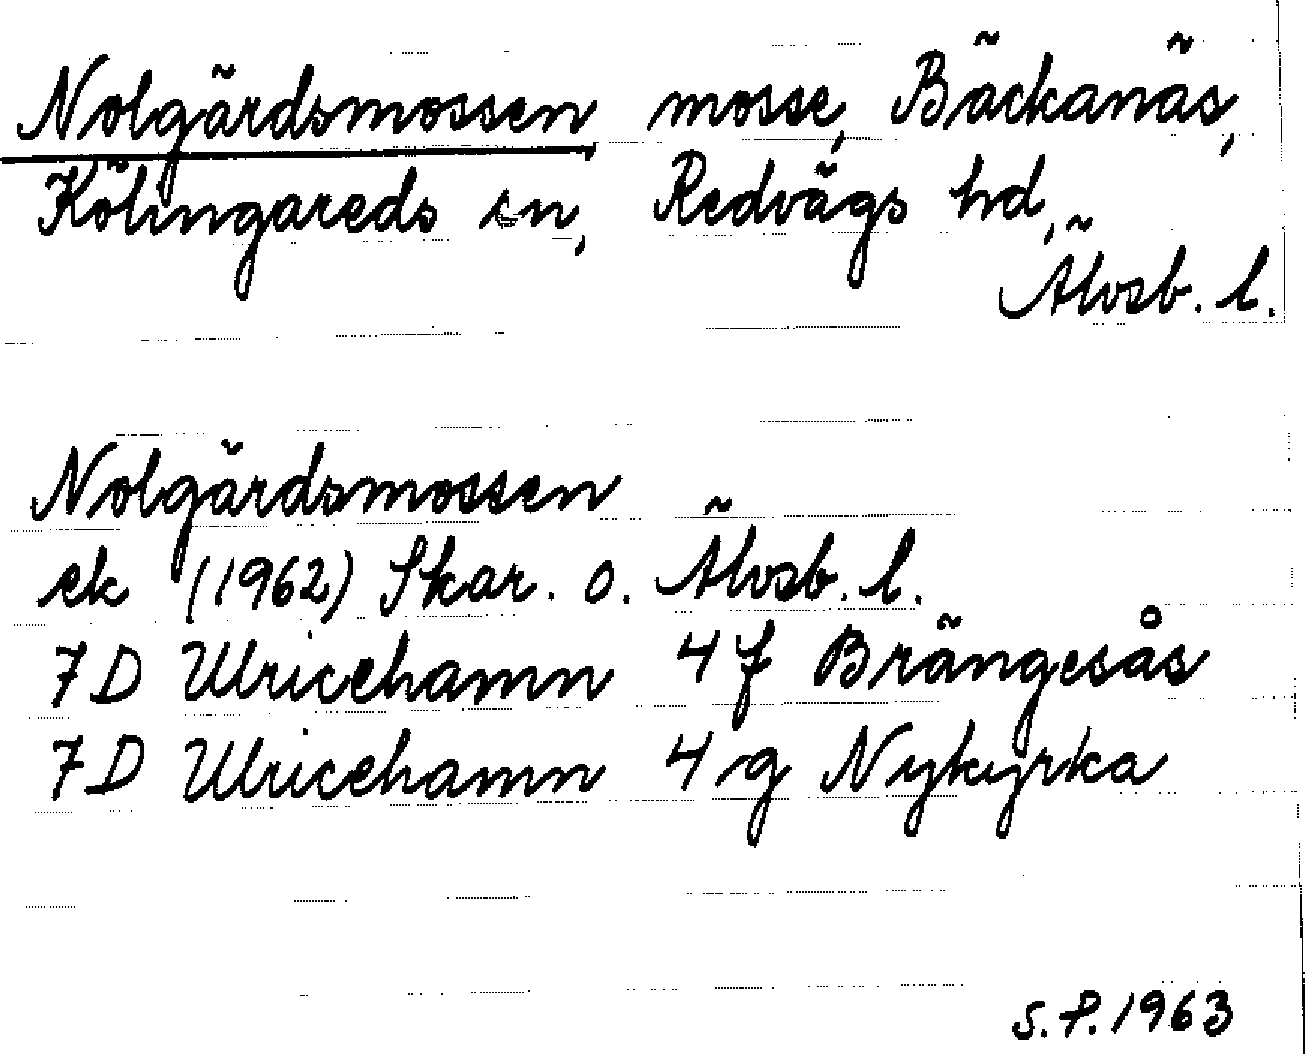 Nolgärdsmossen mosse, Bäckanäs,
Kölingareds sn, Redvägs hd,
Älvsb. l.
Nolgärdsmossen
ek (1962) Skar. o. Älvsb. l.
7D Ulricehamn 4f Brängesås
7D Ulricehamn 4g Nykyrka
S.P. 1963